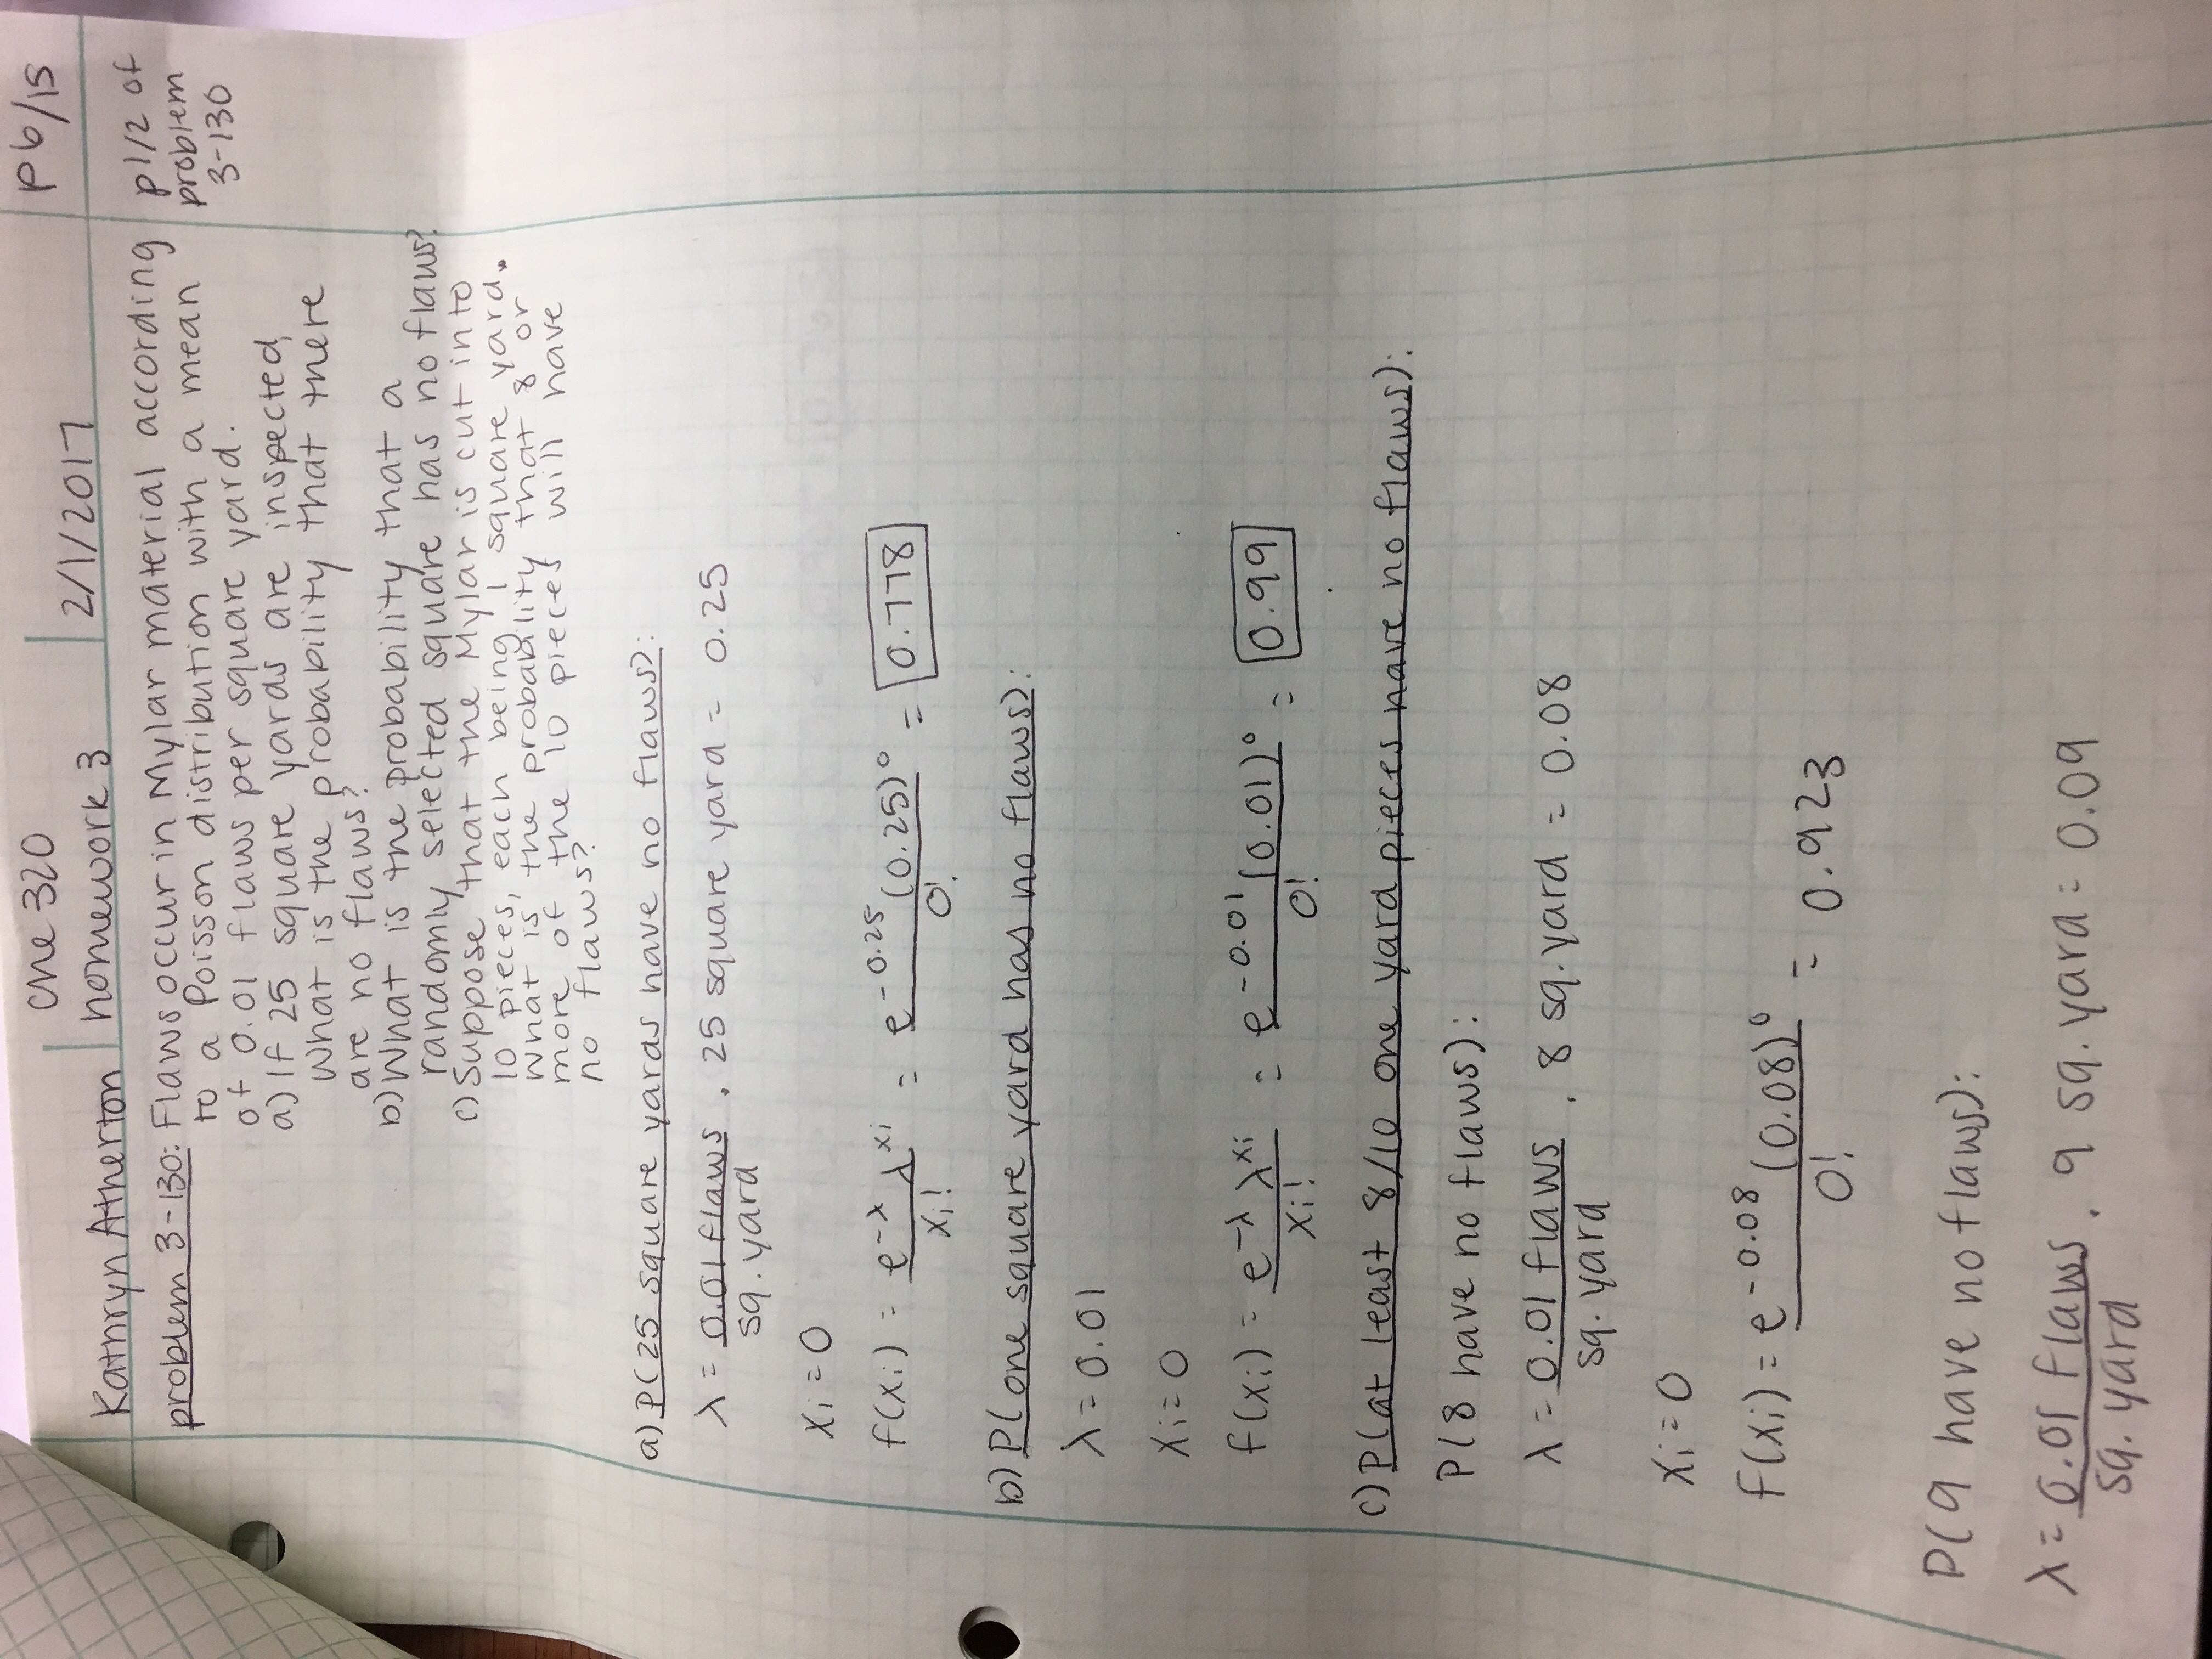 che 320
p6/15
Kathryn Atherton
homework 3
2/1/2017
problem 3-130: Flaws occur in Mylar material according
to a Poisson distribution with a mean
of 0.01 flaws per square yard.
p1/2 of
problem
3-130
a) If 25 square yards are inspected,
What is the probability that there
are no flaws?
b) What is the probability that a
randomly selected square has no flaws?
c) Suppose that the Mylar is cut into
10 pieces, each being 1 square yard.
What is the probability that 8 or
more of the 10 pieces will have
no flaws?
a) P(25 square yards have no flaws):
λ = 0.01 flaws / sq. yard · 25 square yard = 0.25
xᵢ = 0
f(xᵢ) = e^-λ λ^xᵢ / xᵢ! = e^-0.25 (0.25)^0 / 0! = 0.778
b) P(one square yard has no flaws):
λ = 0.01
xᵢ = 0
f(xᵢ) = e^-λ λ^xᵢ / xᵢ! = e^-0.01 (0.01)^0 / 0! = 0.99
c) P(at least 8/10 one yard pieces have no flaws):
P(8 have no flaws):
λ = 0.01 flaws / sq. yard · 8 sq. yard = 0.08
xᵢ = 0
f(xᵢ) = e^-0.08 (0.08)^0 / 0! = 0.923
P(9 have no flaws):
λ = 0.01 flaws / sq. yard · 9 sq. yard = 0.09